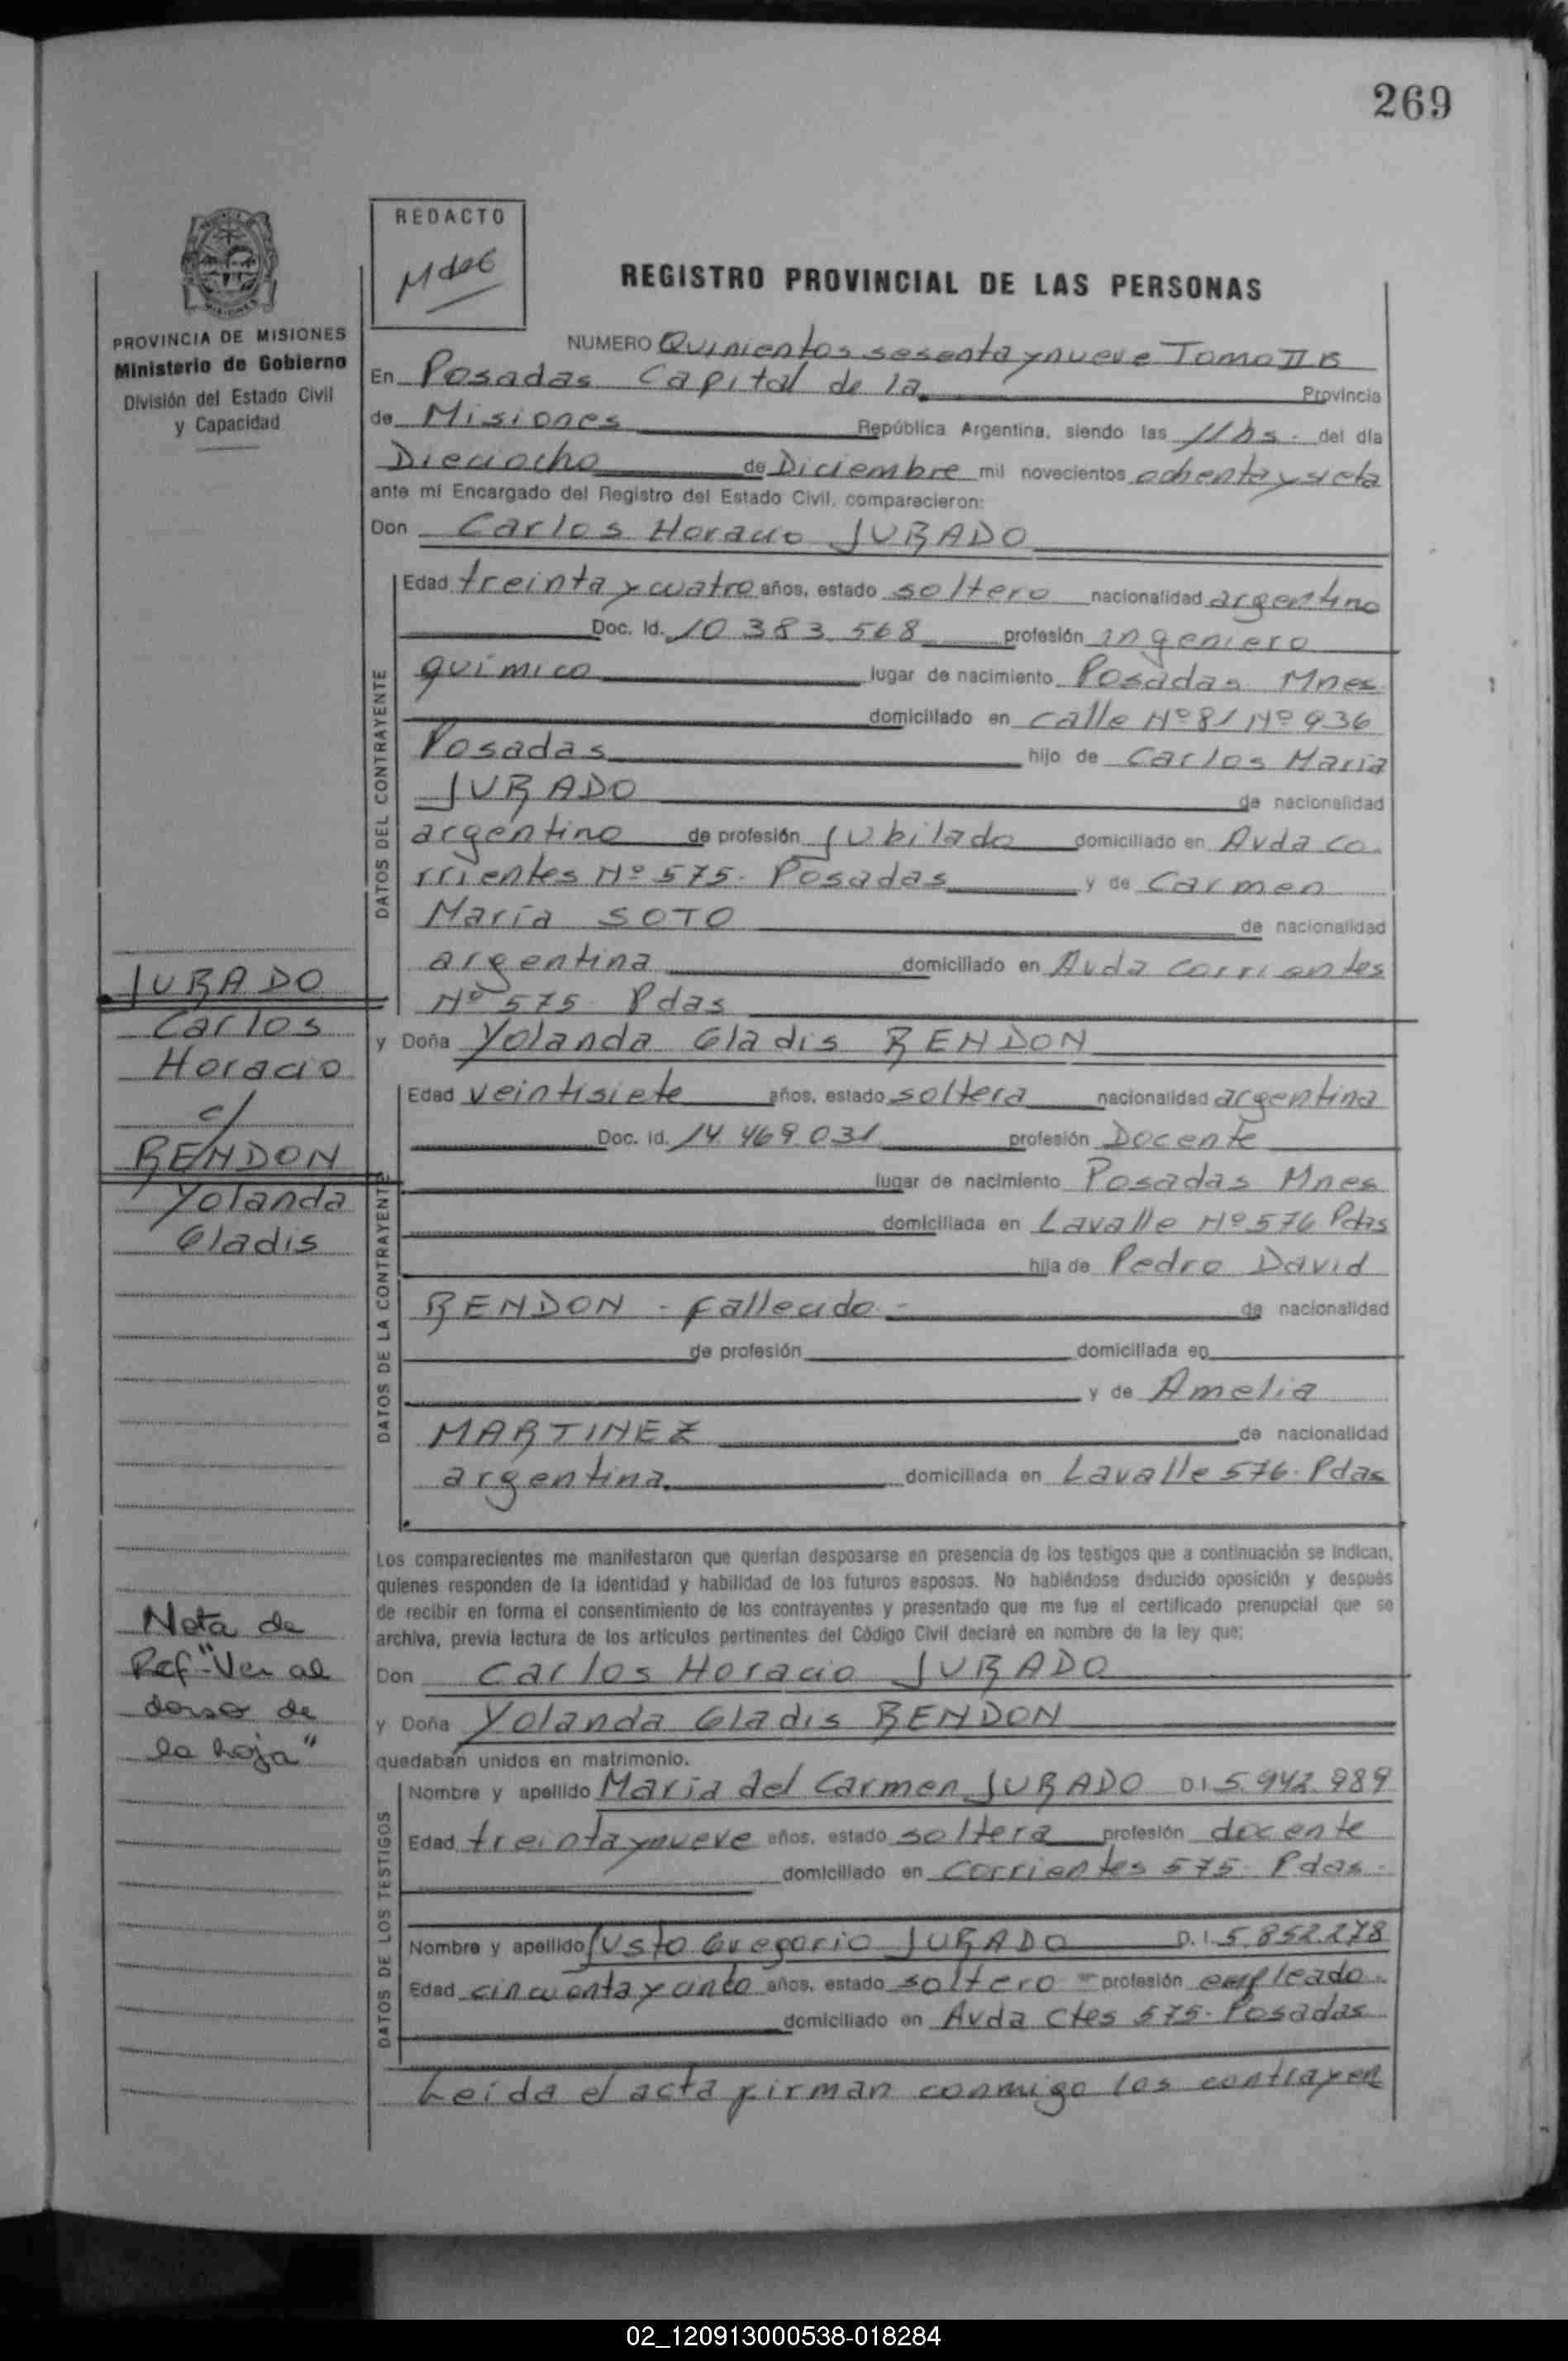 269
REDACTO
PROVINCIA DE MISIONES
Ministerio de Gobierno
División del Estado Civil
y Capacidad
REGISTRO PROVINCIAL DE LAS PERSONAS
NUMERO Quinientos sesenta y nueve Tomo II B
En Posadas Capital de la Provincia
de Misiones República Argentina, siendo las 11 hs. del día
Dieciocho de Diciembre mil novecientos ochenta y siete
ante mí Encargado del Registro del Estado Civil, comparecieron:
Don Carlos Horacio JURADO
DATOS DEL CONTRAYENTE
Edad treinta y cuatro años, estado soltero nacionalidad argentino
Doc. Id. 10.383.568 profesión ingeniero
químico lugar de nacimiento Posadas Mnes
domiciliado en calle Nº 81 Nº 936
Posadas hijo de Carlos María
JURADO de nacionalidad
argentino de profesión jubilado domiciliado en Avda Co
rrientes Nº 575. Posadas y de Carmen
María SOTO de nacionalidad
argentina domiciliado en Avda Corrientes
Nº 575. Pdas
y Doña Yolanda Gladis RENDON
DATOS DE LA CONTRAYENTE
Edad veintisiete años, estado soltera nacionalidad argentina
Doc. Id. 14.469.031 profesión Docente
lugar de nacimiento Posadas Mnes
domiciliada en Lavalle Nº 576 Pdas
hija de Pedro David
RENDON - fallecido - de nacionalidad
de profesión domiciliada en
y de Amelia
MARTINEZ de nacionalidad
argentina domiciliada en Lavalle 576. Pdas
JURADO
Carlos
Horacio
c/
RENDON
Yolanda
Gladis
Nota de
Ref. "Ver al
dorso de
la hoja"
Los comparecientes me manifestaron que querían desposarse en presencia de los testigos que a continuación se indican,
quienes responden de la identidad y habilidad de los futuros esposos. No habiéndose deducido oposición y después
de recibir en forma el consentimiento de los contrayentes y presentado que me fue el certificado prenupcial que se
archiva, previa lectura de los artículos pertinentes del Código Civil declaré en nombre de la ley que:
Don Carlos Horacio JURADO
y Doña Yolanda Gladis RENDON
quedaban unidos en matrimonio.
DATOS DE LOS TESTIGOS
Nombre y apellido María del Carmen JURADO D.I. 5.942.989
Edad treinta y nueve años, estado soltera profesión docente
domiciliado en Corrientes 575. Pdas.
Nombre y apellido Justo Gregorio JURADO D.I. 5.852.278
Edad cincuenta y cinco años, estado soltero profesión empleado.
domiciliado en Avda Ctes 575. Posadas
Leída el acta firman conmigo los contrayen
02_120913000538-018284